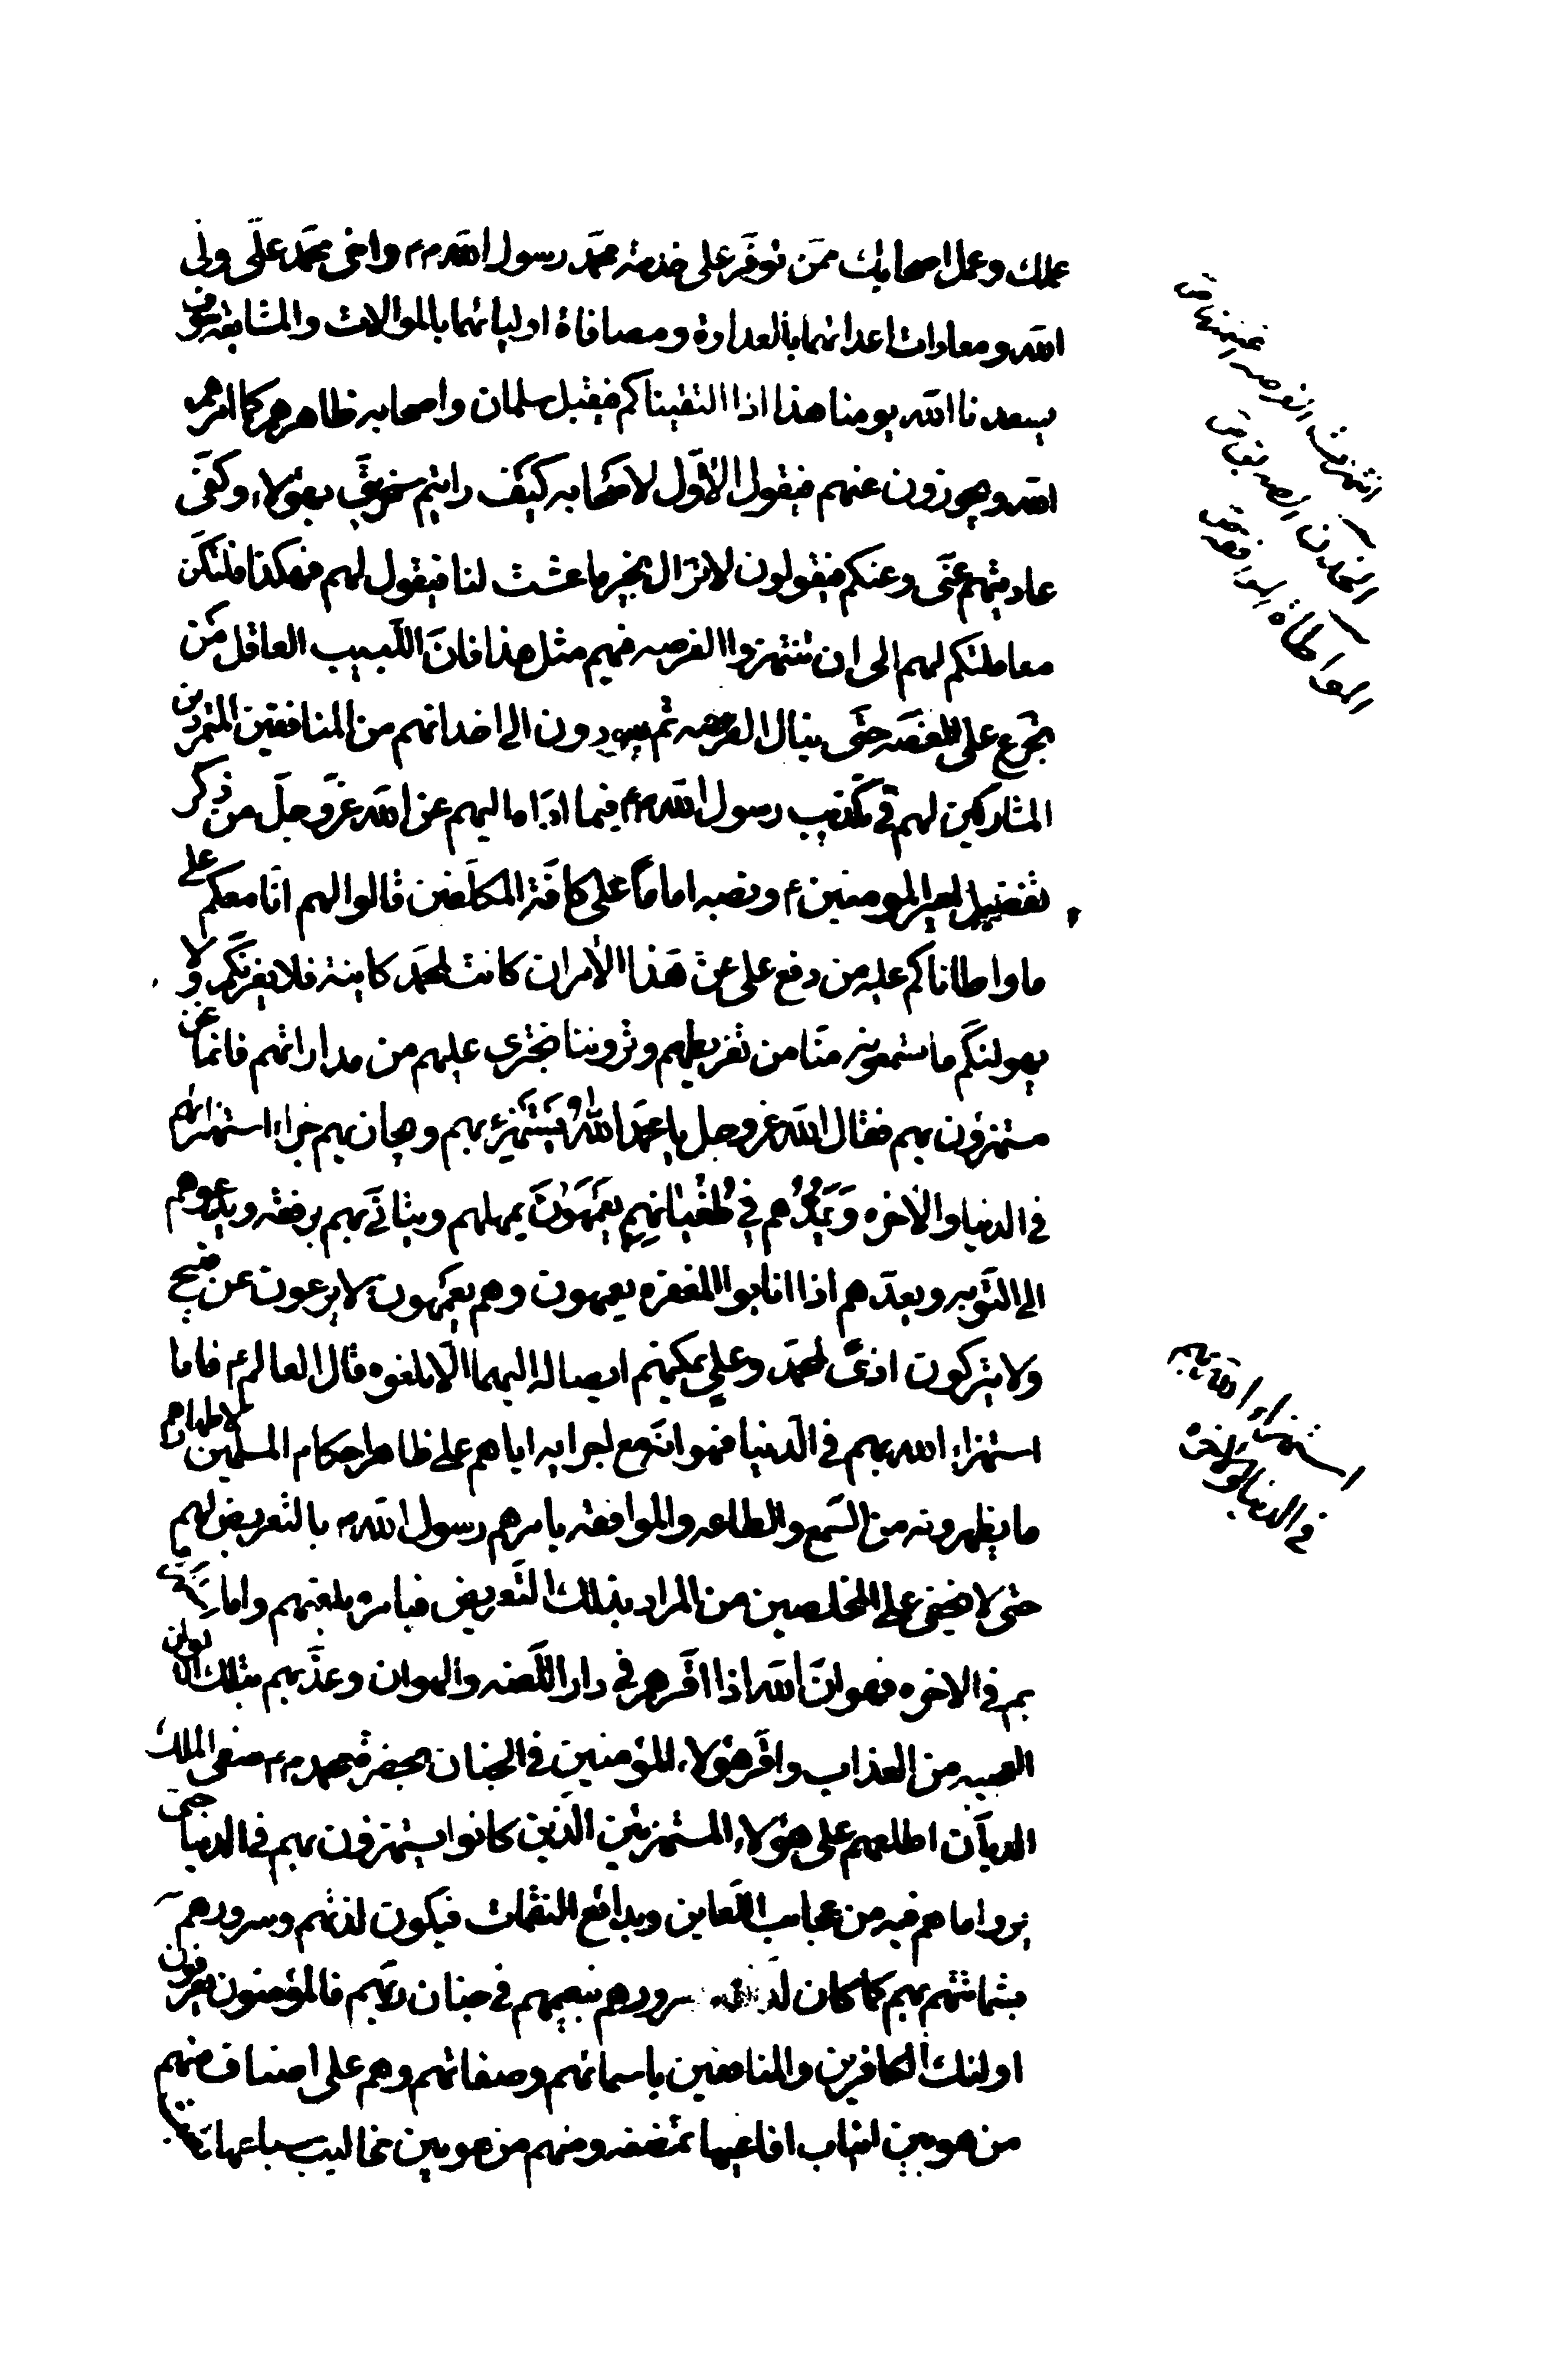 عملك وعمل اصحابك ممن توفر على خدمة محمد رسول الله ص م واخى محمد على ولى
الله ومعادات اعدائهما بالعداوة ومصافاة اوليائهما بالموالات والمشايعة سوف
يسعدنا الله يومنا هذا اذا التقيناكم فيقبل سلمان واصحابه ظاهرهم كما امرهم
الله ويجوزون عنهم فيقول الاول لاصحابه كيف رايتم سخريتى بهؤلاء وكفى
عاديتهم عنى وعنكم فيقولون لا تزال بخير ما عشت لنا فيقول لهم فهكذا فلتكن
معاملتكم لهم الى ان تنتهزوا الفرصه فيهم مثل هذا فان اللبيب العاقل من
تجرع على الغصه حتى ينال الفرصه ثم يعودون الى اخدانهم من المنافقين المتمردين
المشاركين لهم فى تكذيب رسول الله ص م فيما اداه اليهم عن الله عز وجل من ذكر
تفضيل امير المومنين ع ونصبه اماما على كافة المكلفين قالوا لهم انا معكم على
ما واطاناكم عليه من دفع على عن هذا الامر ان كانت لمحمد كاينة فلا يغرنكم ولا
يهولنكم ما تسمعونه منا من تقريظهم وترونا نجترى عليهم من مداراتهم فانما نحن
مستهزؤن بهم فقال الله عز وجل يا محمد الله يستهزئ بهم ويجازيهم جزاء استهزائهم
فى الدنيا والاخره ويمدهم فى طغيانهم يعمهون يمهلهم ويتانى بهم برفقه ويدعوهم
الى التوبه ويعدهم اذا انابوا المغفره يعمهون وهم يعمهون لا يرعون عن قبيح
ولا يتركون اذى لمحمد وعلى يمكنهم ايصاله اليهما الا بلغوه قال العالم ع فاما
استهزاء الله بهم فى الدنيا فهو انه مع اجرايه اياهم على ظاهر احكام المسلمين لاظهارهم
ما يظهرونه من السمع والطاعه والموافقه يامرهم رسول الله ص بالتعريض لهم
حتى لا يخفى على المخلصين من المراد بذلك التعريض فيامره بلعنهم واما
بهم فى الاخره فهو ان الله اذا اقرهم فى دار اللعنه والهوان وعذبهم بتلك الالوان
العجيبه من العذاب واقر هؤلاء المؤمنين فى الجنان بحضرة محمد ص م صفى الملك
الديان اطلعهم على هؤلاء المستهزئين الذين كانوا يستهزؤن بهم فى الدنيا حتى
يروا ما هم فيه من عجايب اللعاين وبدائع النقمات فيكون لذتهم وسرورهم
بشماتتهم بهم كما كان سرورهم بنعيمهم فى جنان ربهم فالمؤمنون يعرفون
اولئك الكافرين والمنافقين باسمائهم وصفاتهم وهم على اصناف منهم
من هو بين انياب افاعيها تمضغه ومنهم من هو بين مخاليب سباعها
استهزاء الله بهم
فى الدنيا والاخرة